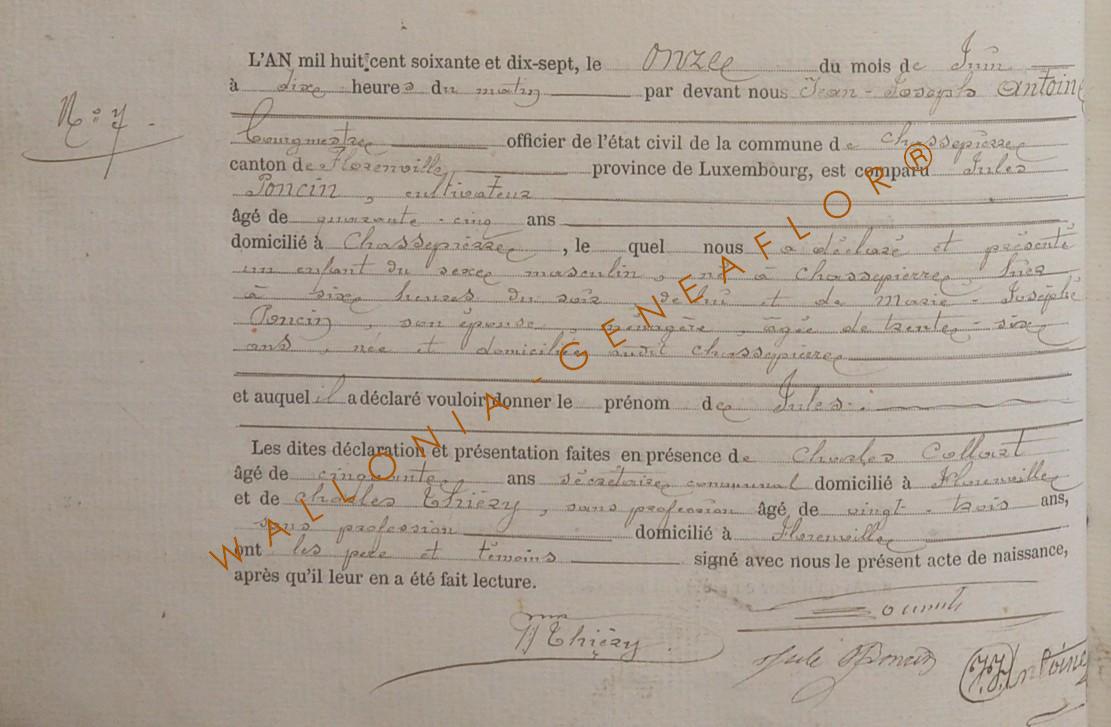 L'AN mil huit cent soixante et dix-sept, le onze du mois de Juin
à dix heures du matin par devant nous Jean-Joseph Antoine
N° 7.
bourgmestre officier de l'état civil de la commune de Chassepierre
canton de Florenville province de Luxembourg, est comparu Jules
Poncin, cultivateur
âgé de quarante-cinq ans
domicilié à Chassepierre, le quel nous a déclaré et présenté
un enfant du sexe masculin, né à Chassepierre hier
à six heures du soir, de lui et de Marie-Josèphe
Poncin, son épouse, ménagère, âgée de trente-six
ans, née et domiciliée audit Chassepierre
et auquel il a déclaré vouloir donner le prénom de Jules.
Les dites déclaration et présentation faites en présence de Charles Collart
âgé de cinquante ans secrétaire communal domicilié à Florenville
et de Charles Thiéry, sans profession âgé de vingt-trois ans,
sans profession domicilié à Florenville
ont les père et témoins signé avec nous le présent acte de naissance,
après qu'il leur en a été fait lecture.
Thiéry
Jule Poncin
J.J. Antoine
WALLONIA-GENEAFLOR®